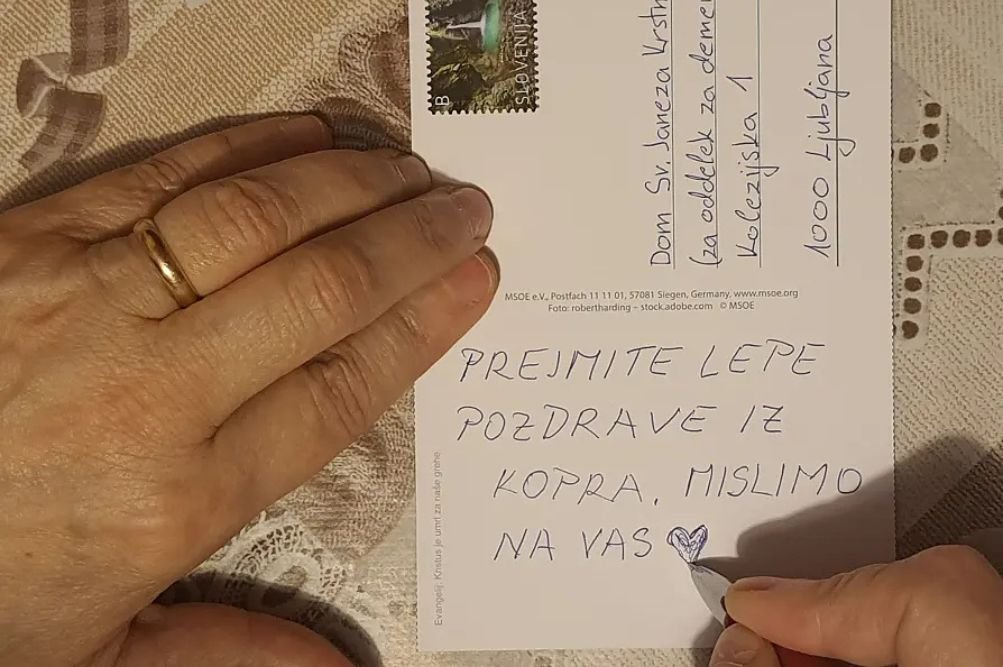 B
SLOVENIJA
Dom Sv. Janeza
(za oddelek za
Kolezijska 1
1000 Ljubljana
MSOE e.V., Postfach 11 11 01, 57081 Siegen, Germany, www.msoe.org
Foto: robertharding – stock.adobe.com © MSOE
PREJMITE LEPE
POZDRAVE IZ
KOPRA. MISLIMO
NA VAS
Evangelij: Kristus je umrl za naše grehe